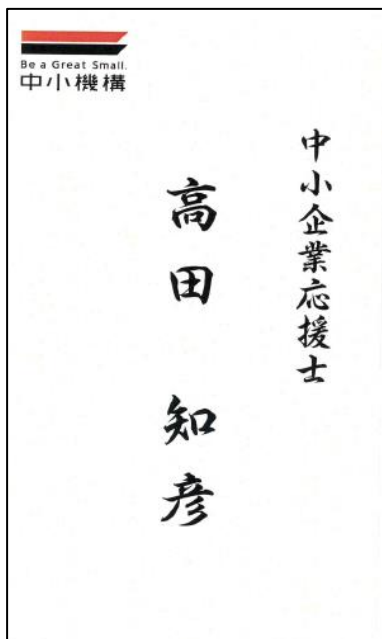 Be a Great Small.
中小機構
中小企業応援士
高田 知彦